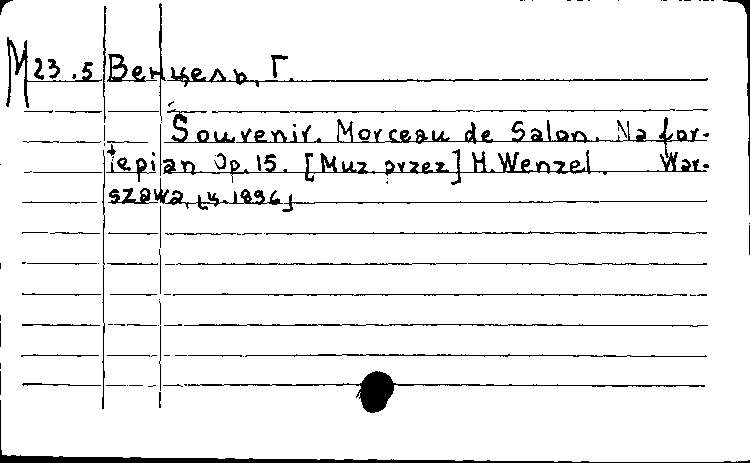 М 23.5 Венцель, Г.
Souvenir. Morceau de Salon. Na for-
tepian Op. 15. [Muz. przez] H. Wenzel. War-
szawa, [ц. 1896]